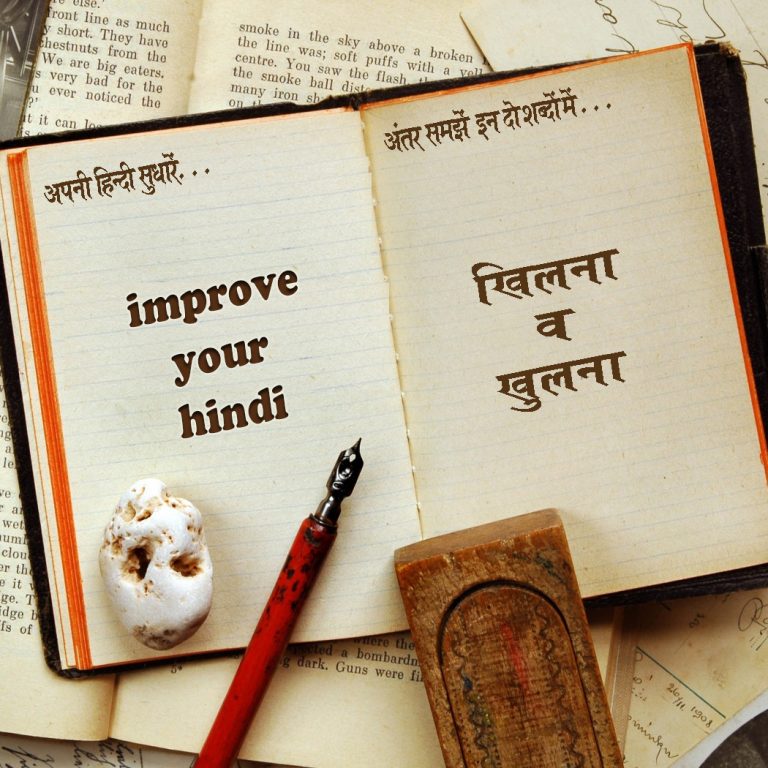 else.'
front line as much
short. They have
chestnuts from the
We are big eaters.
very bad for the
ever noticed the
it can
smoke in the sky above a broken
the line was; soft puffs with a
centre. You saw the flash,
the smoke ball
many iron
on
अपनी हिन्दी सुधारें. . .
improve
your
hindi
अंतर समझें इन दो शब्दों में . . .
खिलना
व
खुलना
where the
a
dark. Guns were